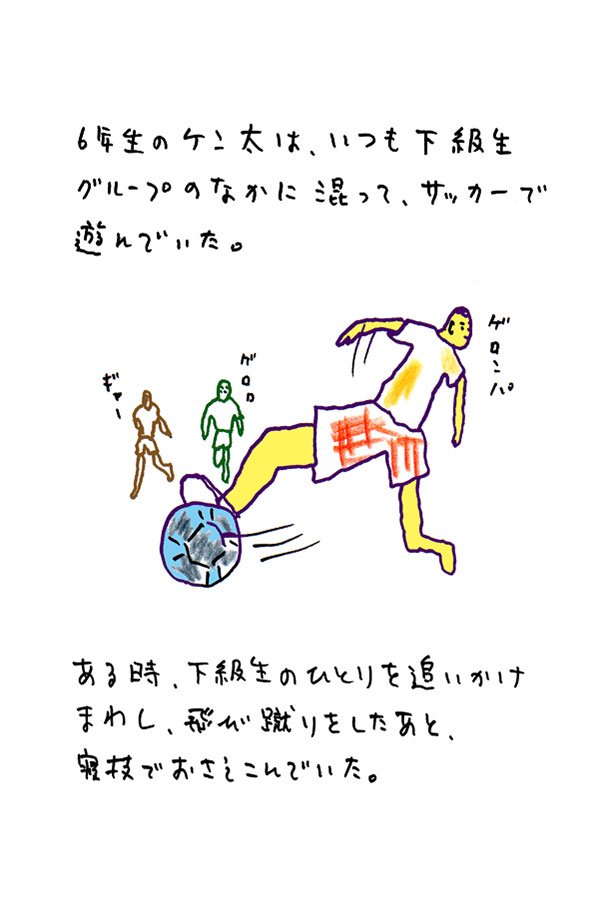 6年生のケン太は、いつも下級生
グループのなかに混って、サッカーで
遊んでいた。
ゲロンパ
ゲロロ
ギャー
ある時、下級生のひとりを追いかけ
まわし、飛び蹴りをしたあと、
寝技でおさえこんでいた。